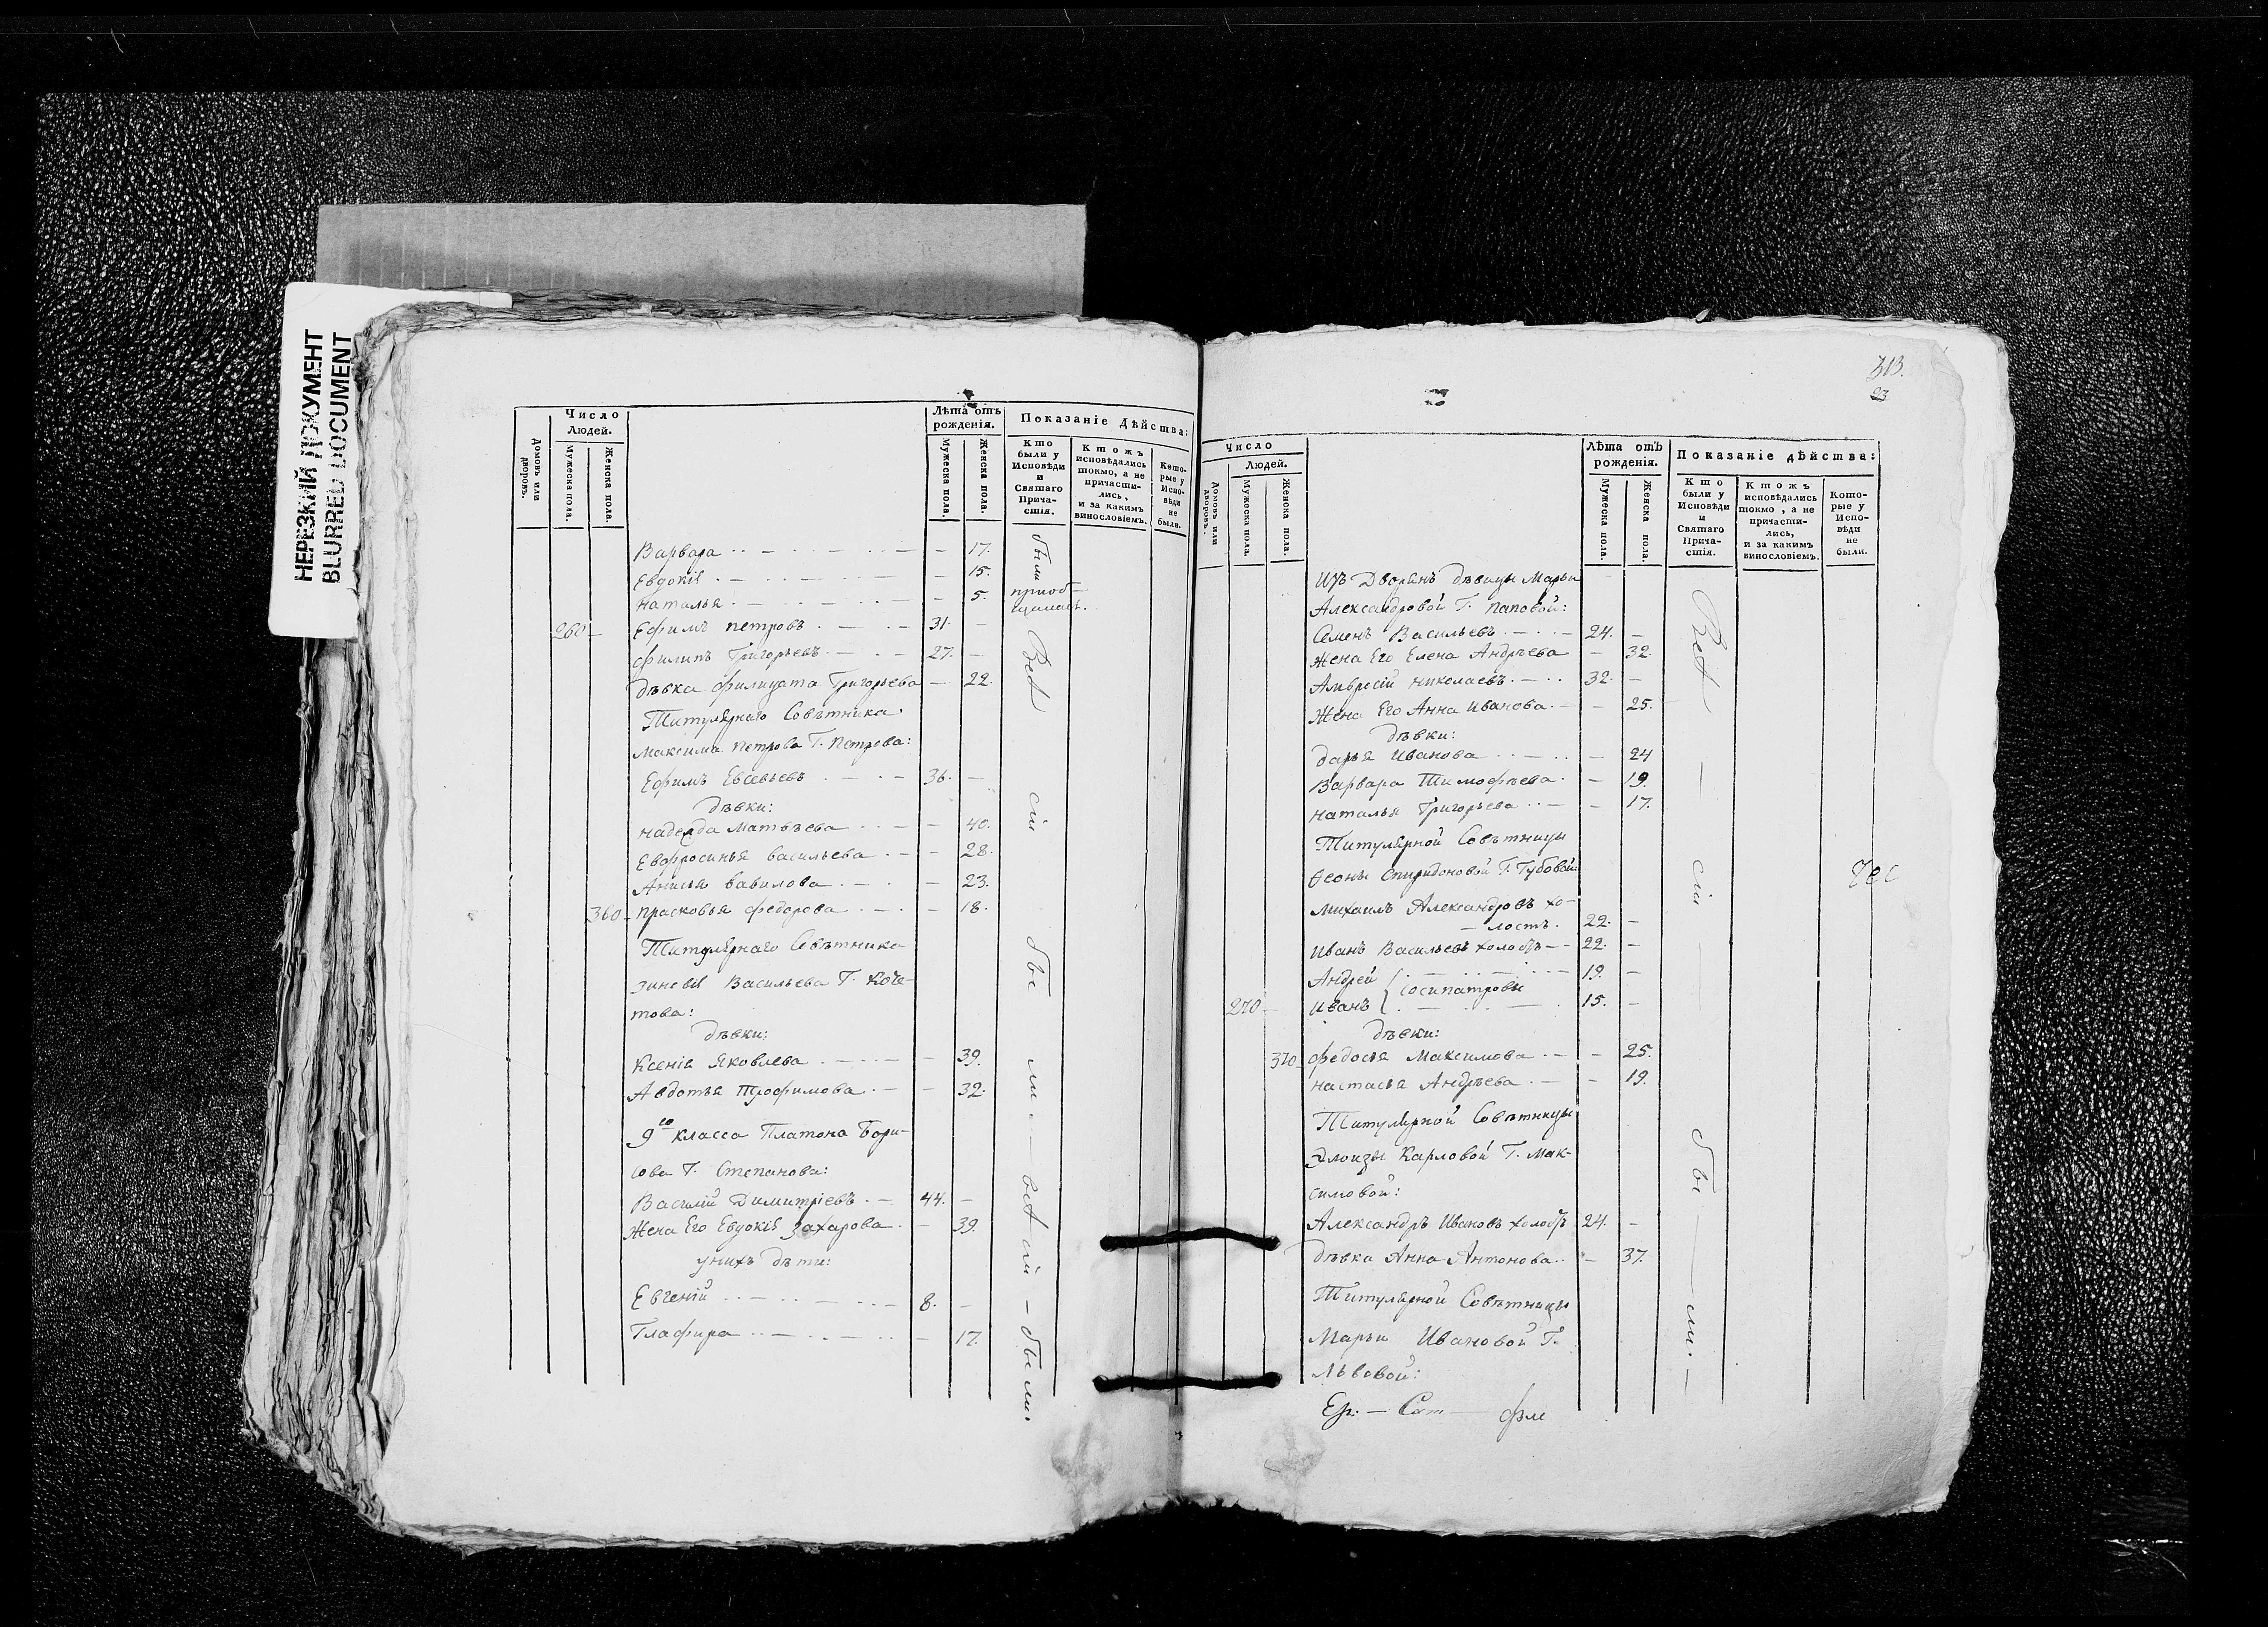 НЕРЕЗКИЙ ДОКУМЕНТ
BLURRED DOCUMENT
Число
Людей.
Домовъ или дворовъ.
Мужеска пола.
Женска пола.
Лѣта отъ рожденія.
Мужеска пола.
Женска пола.
Показаніе дѣйства:
Кто были у Исповѣди и Святаго Причастія.
Ктожъ исповѣдались токмо, а не причастились, и за какимъ винословіемъ.
Которые у Исповѣди не были.
Варвара - 17.
Евдокія - 15.
были
Наталья - 5. приобщилась.
260 Ефимъ Петровъ 31. -
Филипъ Григорьевъ 27. -
дѣвка Филицата Григорьева - 22.
Титулярнаго Совѣтника
Максима Петрова Г. Петрова:
Ефимъ Евсевьевъ 36. -
дѣвки:
Надежда Матвѣева - 40.
Евфросинья Васильева - 28.
Анисья Вавилова - 23.
360 Прасковья Федорова - 18.
Титулярнаго Совѣтника
Зиновія Васильева Г. Коче-
това:
дѣвки:
Ксенія Яковлева - 39.
Авдотья Трофимова - 32.
9го класса Платона Бори-
сова Г. Степанова:
Василій Димитріевъ 44. -
Жена Его Евдокія Захарова - 39.
у нихъ дѣти:
Евгеній 8. -
Глафира - 17.
Всѣ сіи были - всѣ сіи - были.
313.
23
Число
Людей.
Домовъ или дворовъ.
Мужеска пола.
Женска пола.
Лѣта отъ рожденія.
Мужеска пола.
Женска пола.
Показаніе дѣйства:
Кто были у Исповѣди и Святаго Причастія.
Ктожъ исповѣдались токмо, а не причастились, и за какимъ винословіемъ.
Которые у Исповѣди не были.
Изъ Дворянъ дѣвицы Марьи
Александровой Г. Паповой:
Семенъ Васильевъ 24. -
Жена Его Елена Андрѣева - 32.
Амвросій Николаевъ 32. -
Жена Его Анна Иванова - 25.
дѣвки:
Дарья Иванова - 24
Варвара Тимофѣева - 19.
Наталья Григорьева - 17.
Титулярной Совѣтницы
Ѳеоны Спиридоновой Г. Губовой
Михаилъ Александровъ хо-
лостъ. 22. -
Иванъ Васильевъ холостъ 22. -
Андрей 19. -
Осипатровы
270 Иванъ 15. -
дѣвки:
370 Федосья Максимова - 25.
Настасья Андрѣева - 19.
Титулярной Совѣтницы
Элоизы Карловой Г. Мак-
симовой:
Александръ Ивановъ холостъ 24. -
Дѣвка Анна Антонова - 37.
Титулярной Совѣтницы
Марьи Ивановой Г.
Львовой:
Всѣ - сіи - были. -